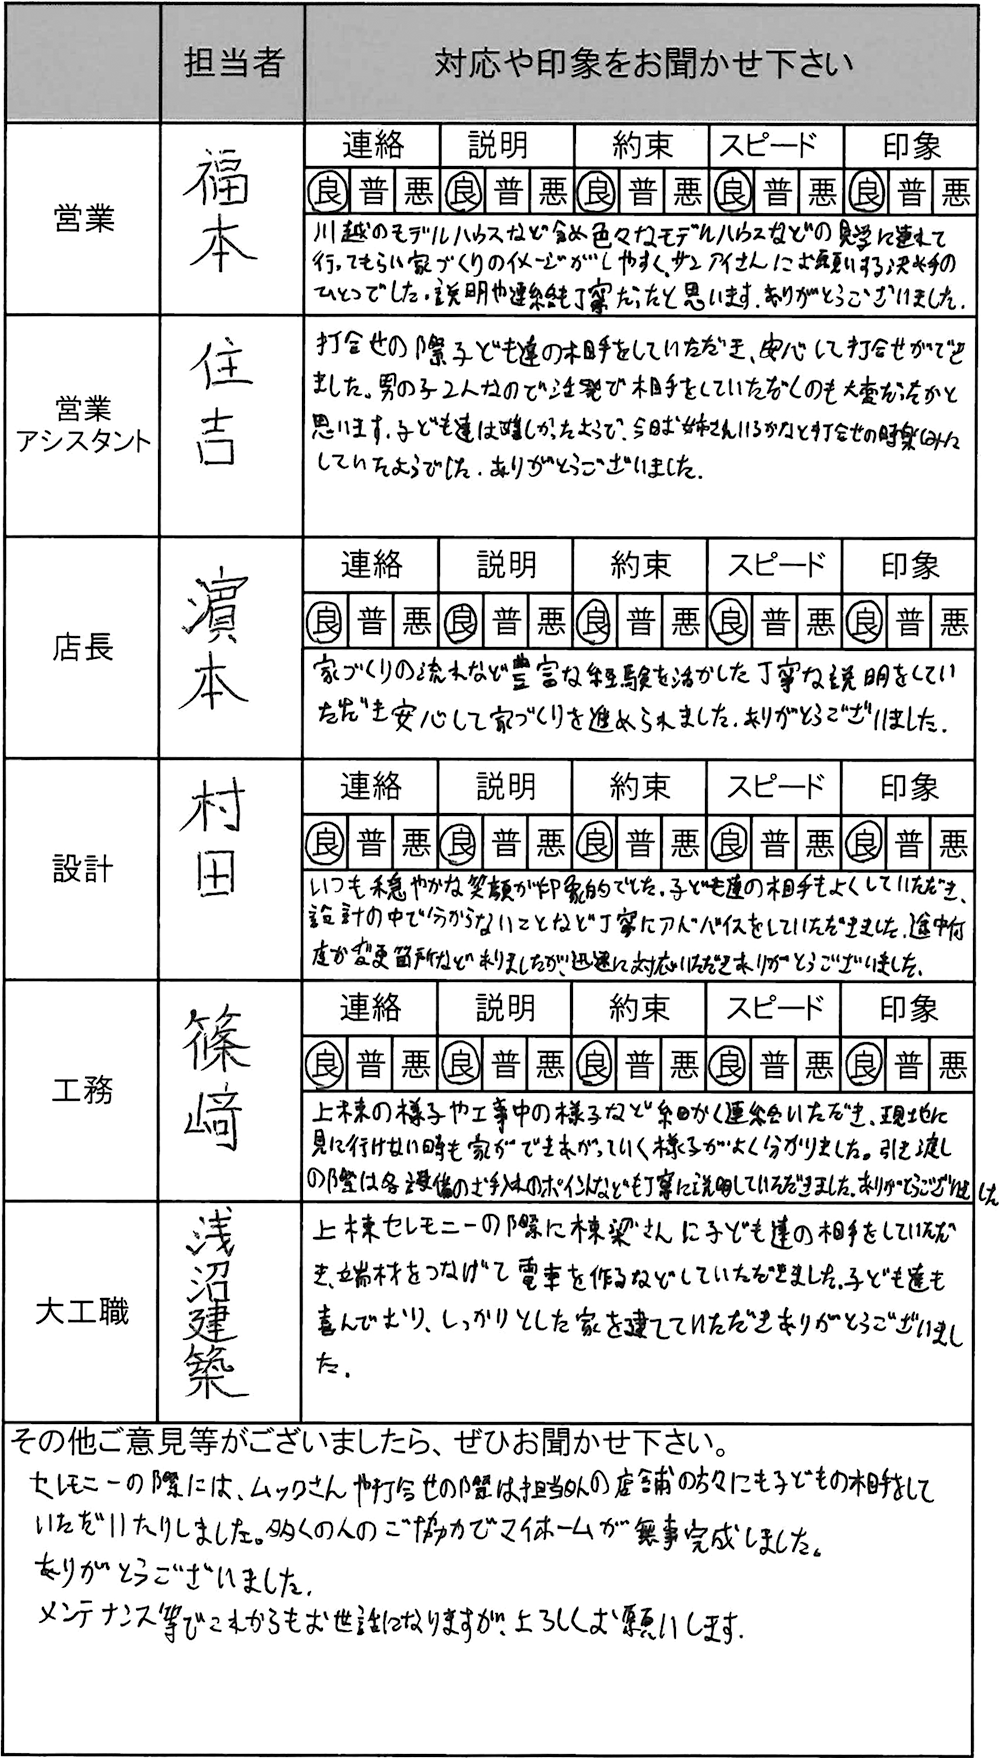 担当者 対応や印象をお聞かせ下さい
営業 福本
連絡 説明 約束 スピード 印象
良 普 悪 良 普 悪 良 普 悪 良 普 悪 良 普 悪
川越のモデルハウスなど含め色々なモデルハウスなどの見学に連れて
行ってもらい家づくりのイメージがしやすく、サンアイさんにお願いする決め手の
ひとつでした。説明や連絡も丁寧だったと思います。ありがとうございました。
営業
アシスタント
住吉
打合せの際子ども達の相手をしていただき、安心して打合せができ
ました。男の子2人なので活発で相手をしていただくのも大変だったかと
思います。子ども達は嬉しかったようで、今日お姉さんいるかなと打合せの時楽しみに
していたようでした。ありがとうございました。
店長 濵本
連絡 説明 約束 スピード 印象
良 普 悪 良 普 悪 良 普 悪 良 普 悪 良 普 悪
家づくりの流れなど豊富な経験を活かした丁寧な説明をしてい
ただき安心して家づくりを進められました。ありがとうございました。
設計 村田
連絡 説明 約束 スピード 印象
良 普 悪 良 普 悪 良 普 悪 良 普 悪 良 普 悪
いつも穏やかな笑顔が印象的でした。子ども達の相手もよくしていただき、
設計の中で分からないことなど丁寧にアドバイスをしていただきました。途中何
度か変更箇所などありましたが、迅速に対応いただきありがとうございました。
工務 篠﨑
連絡 説明 約束 スピード 印象
良 普 悪 良 普 悪 良 普 悪 良 普 悪 良 普 悪
上棟の様子や工事中の様子など細かく連絡いただき、現地に
見に行けない時も家ができあがっていく様子がよく分かりました。引き渡し
の際は各設備のお手入れのポイントなども丁寧に説明していただきました。ありがとうございました
大工職 浅沼建築
上棟セレモニーの際に棟梁さんに子ども達の相手をしていただ
き、端材をつなげて電車を作るなどしていただきました。子ども達も
喜んでおり、しっかりとした家を建てていただきありがとうございまし
た。
その他ご意見等がございましたら、ぜひお聞かせ下さい。
セレモニーの際には、ムックさんや打合せの際は担当外の店舗の方々にも子どもの相手をして
いただいたりしました。多くの人のご協力でマイホームが無事完成しました。
ありがとうございました。
メンテナンス等でこれからもお世話になりますが、よろしくお願いします。